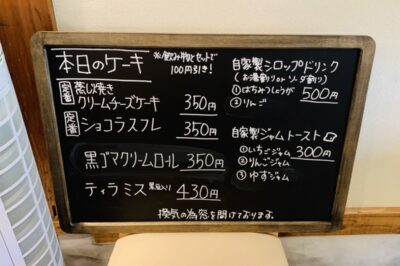 本日のケーキ
※飲み物とセットで
100円引き!
定番 蒸し焼き
クリームチーズケーキ 350円
定番 ショコラスフレ 350円
黒ゴマクリームロール 350円
ティラミス 黒豆入り 430円
自家製シロップドリンク
(お湯割り or ソーダ割り)
①はちみつしょうが 500円
②りんご
自家製ジャムトースト
①いちごジャム 300円
②りんごジャム
③ゆずジャム
換気の為窓を開けております。